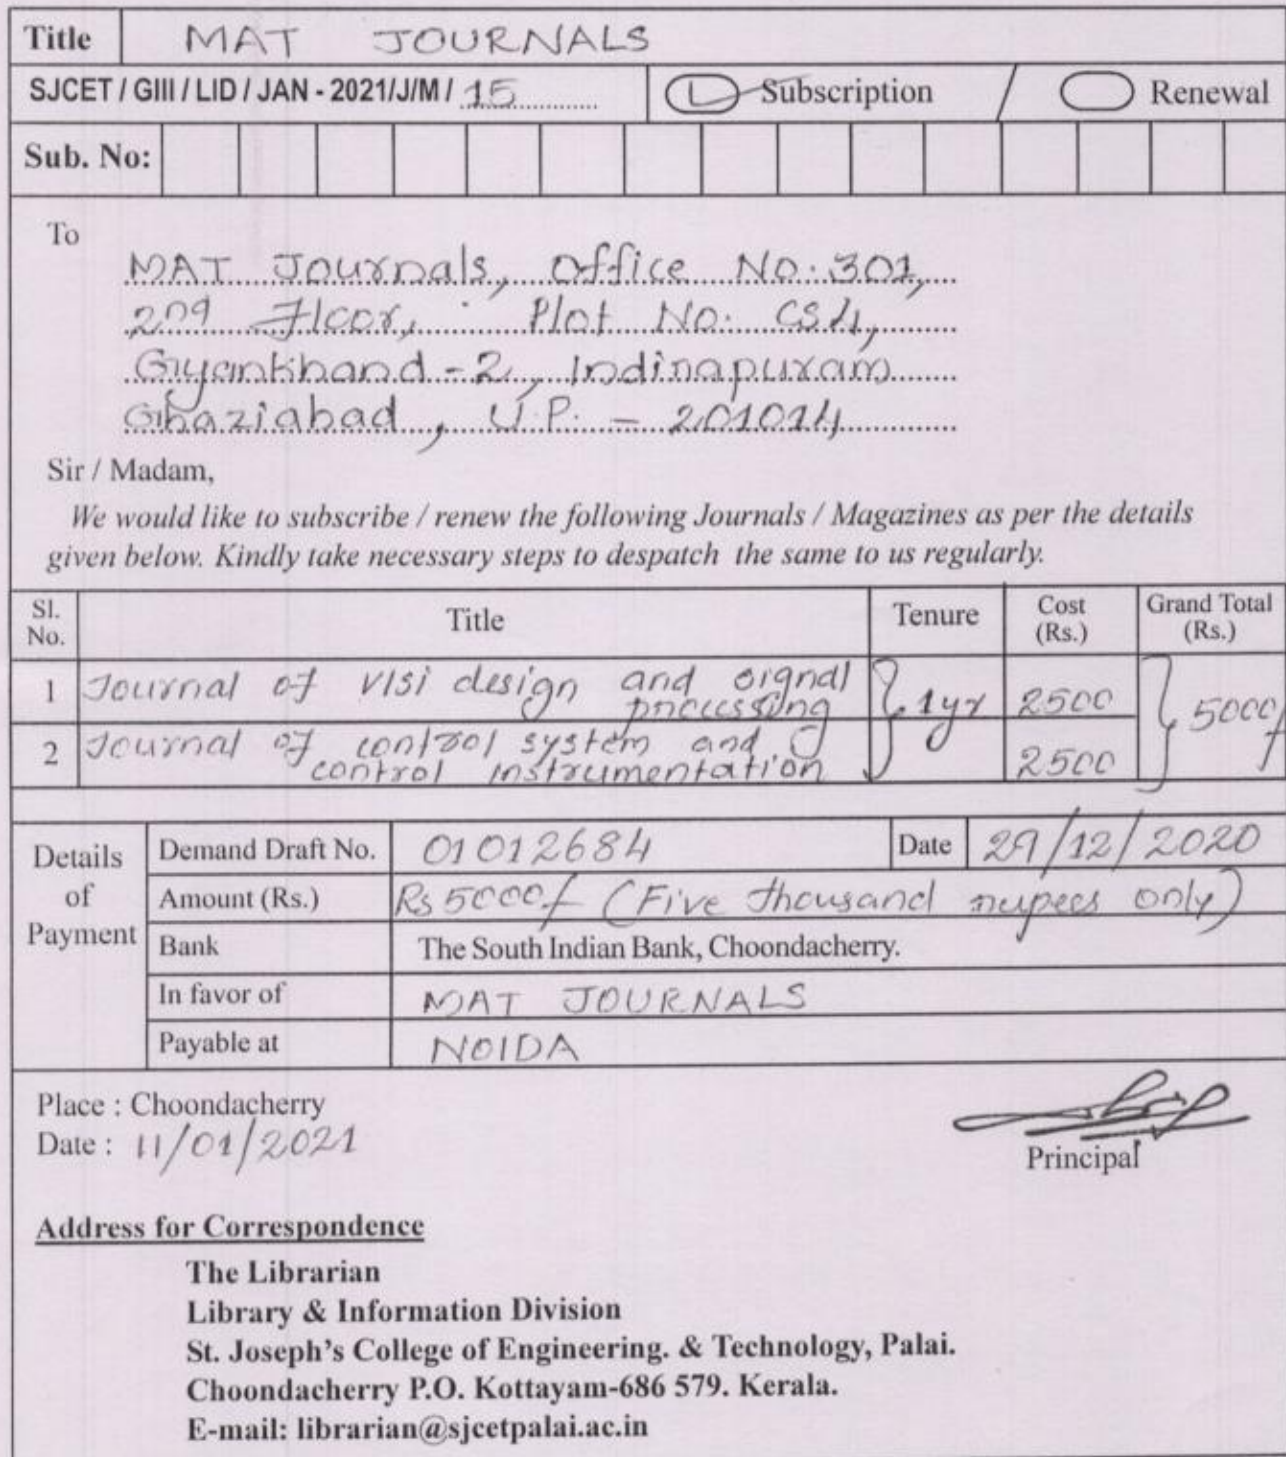 Title MAT JOURNALS
SJCET / GIII / LID / JAN - 2021/J/M/ 15 Subscription / Renewal
Sub. No:
To
MAT Journals, Office No. 301,
2nd Floor, Plot No. CS4,
Gyankhand - 2, Indirapuram
Ghaziabad, U.P. - 201014
Sir / Madam,
We would like to subscribe / renew the following Journals / Magazines as per the details
given below. Kindly take necessary steps to despatch the same to us regularly.
Sl. No. Title Tenure Cost (Rs.) Grand Total (Rs.)
1 Journal of VlSi design and signal processing 1yr 2500 5000/-
2 Journal of control system and control instrumentation 2500
Details of Payment
Demand Draft No. 01012684 Date 29/12/2020
Amount (Rs.) Rs 5000/- (Five thousand rupees only)
Bank The South Indian Bank, Choondacherry.
In favor of MAT JOURNALS
Payable at NOIDA
Place : Choondacherry
Date : 11/01/2021
Principal
Address for Correspondence
The Librarian
Library & Information Division
St. Joseph's College of Engineering. & Technology, Palai.
Choondacherry P.O. Kottayam-686 579. Kerala.
E-mail: librarian@sjcetpalai.ac.in